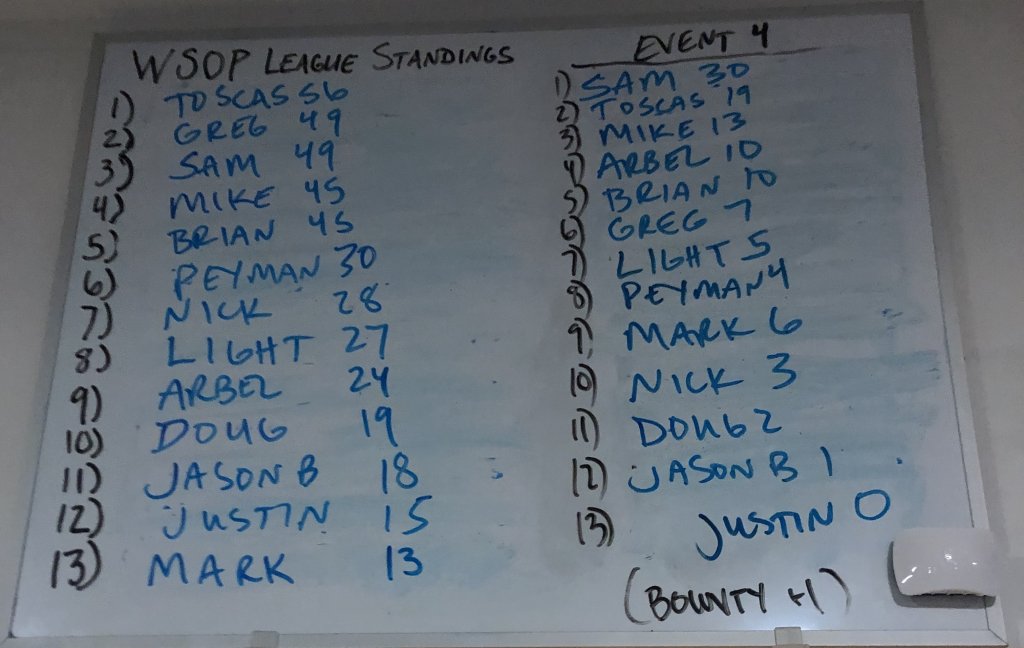 WSOP LEAGUE STANDINGS
1) TOSCAS 56
2) GREG 49
3) SAM 49
4) MIKE 45
5) BRIAN 45
6) PEYMAN 30
7) NICK 28
8) LIGHT 27
9) ARBEL 24
10) DOUG 19
11) JASON B 18
12) JUSTIN 15
13) MARK 13
EVENT 4
1) SAM 30
2) TOSCAS 19
3) MIKE 13
4) ARBEL 10
5) BRIAN 10
6) GREG 7
7) LIGHT 5
8) PEYMAN 4
9) MARK 6
10) NICK 3
11) DOUG 2
12) JASON B 1
13) JUSTIN 0
(BOUNTY +1)